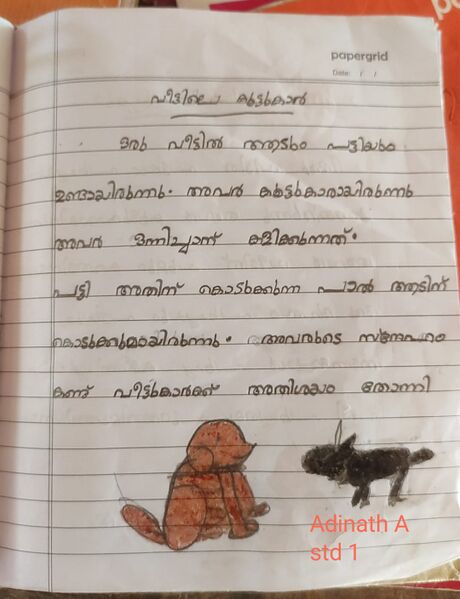 papergrid
Date: / /
വീട്ടിലെ കൂട്ടുകാർ
ഒരു വീട്ടിൽ ആടും പട്ടിയും
ഉണ്ടായിരുന്നു. അവർ കൂട്ടുകാരായിരുന്നു
അവർ ഒന്നിച്ചാണ് കളിക്കുന്നത്.
പട്ടി അതിന് കൊടുക്കുന്ന പാൽ ആടിന്
കൊടുക്കുമായിരുന്നു. അവരുടെ സ്നേഹം
കണ്ട് വീട്ടുകാർക്ക് അതിശയം തോന്നി
Adinath A
std 1